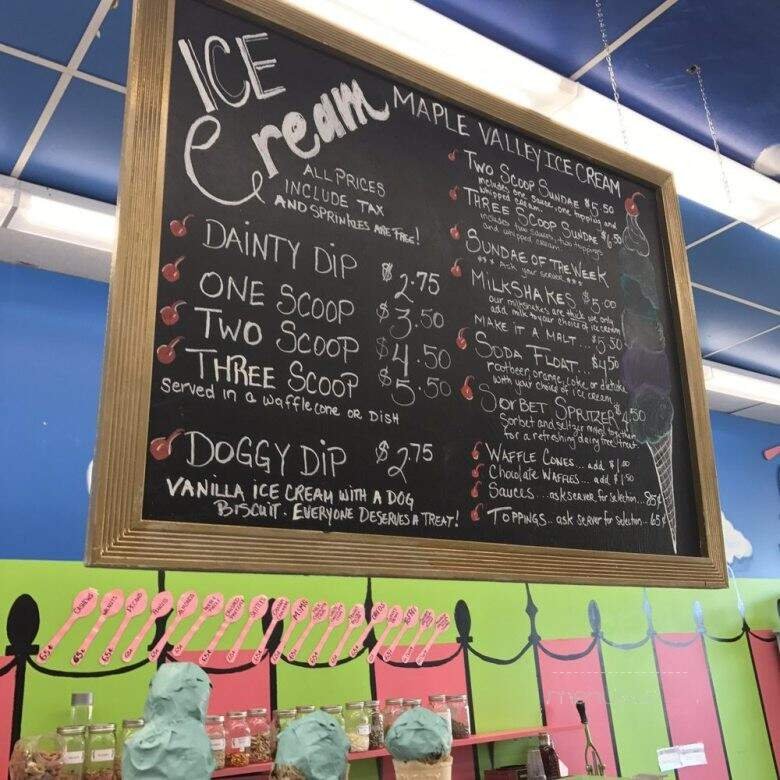 ICE
Cream
ALL PRICES
INCLUDE TAX
AND SPRINKLES ARE FREE!
DAINTY DIP $2.75
ONE SCOOP $3.50
TWO SCOOP $4.50
THREE SCOOP $5.50
Served in a waffle cone OR DISH
DOGGY DIP $2.75
VANILLA ICE CREAM WITH A DOG
BISCUIT. EVERYONE DESERVES A TREAT!
MAPLE VALLEY ICE CREAM
TWO SCOOP SUNDAE $5.50
includes one sauce, one topping and
whipped cream.
THREE SCOOP SUNDAE $6.50
includes two sauces, two toppings
and whipped cream
SUNDAE OF THE WEEK
*** Ask your server ***
MILKSHAKES $5.00
our milkshakes are thick we only
add milk to your choice of ice cream
MAKE IT A MALT... $5.50
SODA FLOAT... $4.50
rootbeer, orange, coke, or diet coke
with your choice of ice cream
SORBET SPRITZER $4.50
Sorbet and seltzer mixed together
for a refreshing dairy free treat.
WAFFLE CONES... add $1.00
Chocolate WAFFLES... add $1.50
Sauces... ask server for selection... 85¢
TOPPINGS... ask server for selection... 65¢